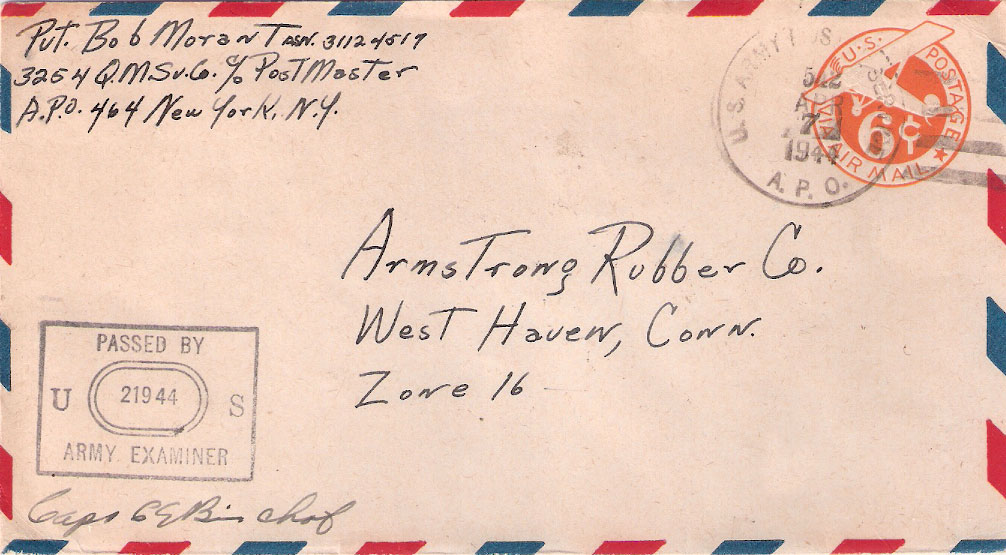 Pvt. Bob Morant ASN. 31124517
3254 Q.M.Sv.Co. c/o PostMaster
A.P.O. 464 New York, N.Y.
U.S. ARMY
APR
7
1944
A. P. O.
U.S. POSTAGE
6¢
VIA AIR MAIL
ArmsTrong Rubber Co.
West Haven, Conn.
Zone 16
PASSED BY
U 21944 S
ARMY EXAMINER
Capt